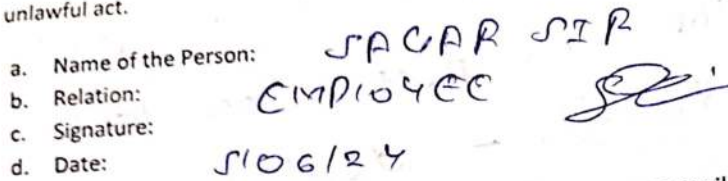 unlawful act.
a. Name of the Person: SAGAR SIR
b. Relation: EMPLOYEE
c. Signature:
d. Date: 5/06/24